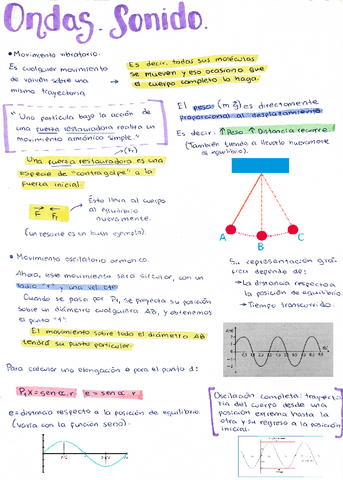 Ondas. Sonido.
• Movimiento vibratorio.
Es cualquier movimiento
de vaivén sobre una
misma trayectoria.
Es decir, todas sus moléculas
se mueven y eso ocasiona que
el cuerpo completo lo haga.
"Una partícula bajo la acción de
una fuerza restauradora realiza un
movimiento armónico simple."
(Fr)
Una fuerza restauradora es una
especie de "contragolpe" a la
fuerza inicial.
F Fr
Ésta lleva al cuerpo
al equilibrio
nuevamente.
(un resorte es un buen ejemplo).
El peso (m g) es directamente
proporcional al desplazamiento.
Es decir: ↑Peso ↑Distancia recorre.
(También tiende a llevarlo nuevamente
al equilibrio).
A B C
• Movimiento oscilatorio armónico.
Ahora, este movimiento será circular, con un
radio "r" y una vel. cte
Cuando se pasa por P1, se proyecta su posición
sobre un diámetro cualquiera AB, y obtenemos
el punto
El movimiento sobre todo el diámetro AB
tendrá su punto particular.
Su representación grá-
fica depende de:
→ La distancia respecto a
la posición de equilibrio.
→ Tiempo transcurrido.
Para calcular una elongación e para el punto d:
P1X = sen α . r e = sen α . r
e = distancia respecto a la posición de equilibrio.
(varía con la función seno).
Oscilación completa: trayecto-
ria del cuerpo desde una
posición extrema hasta la
otra y su regreso a la posición
inicial.